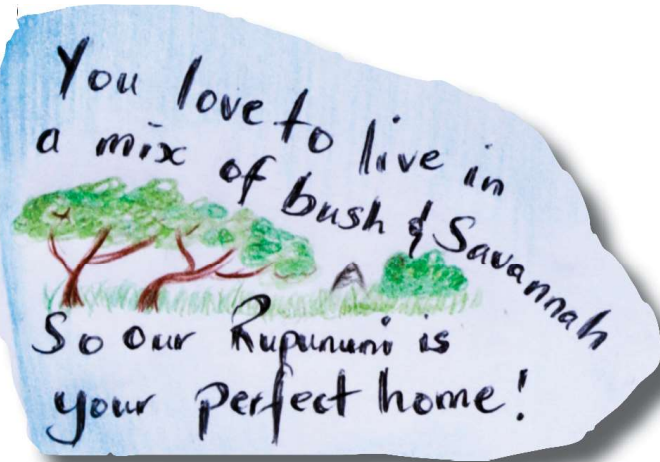 You love to live in
a mix of bush & Savannah
So our Rupununi is
your perfect home!